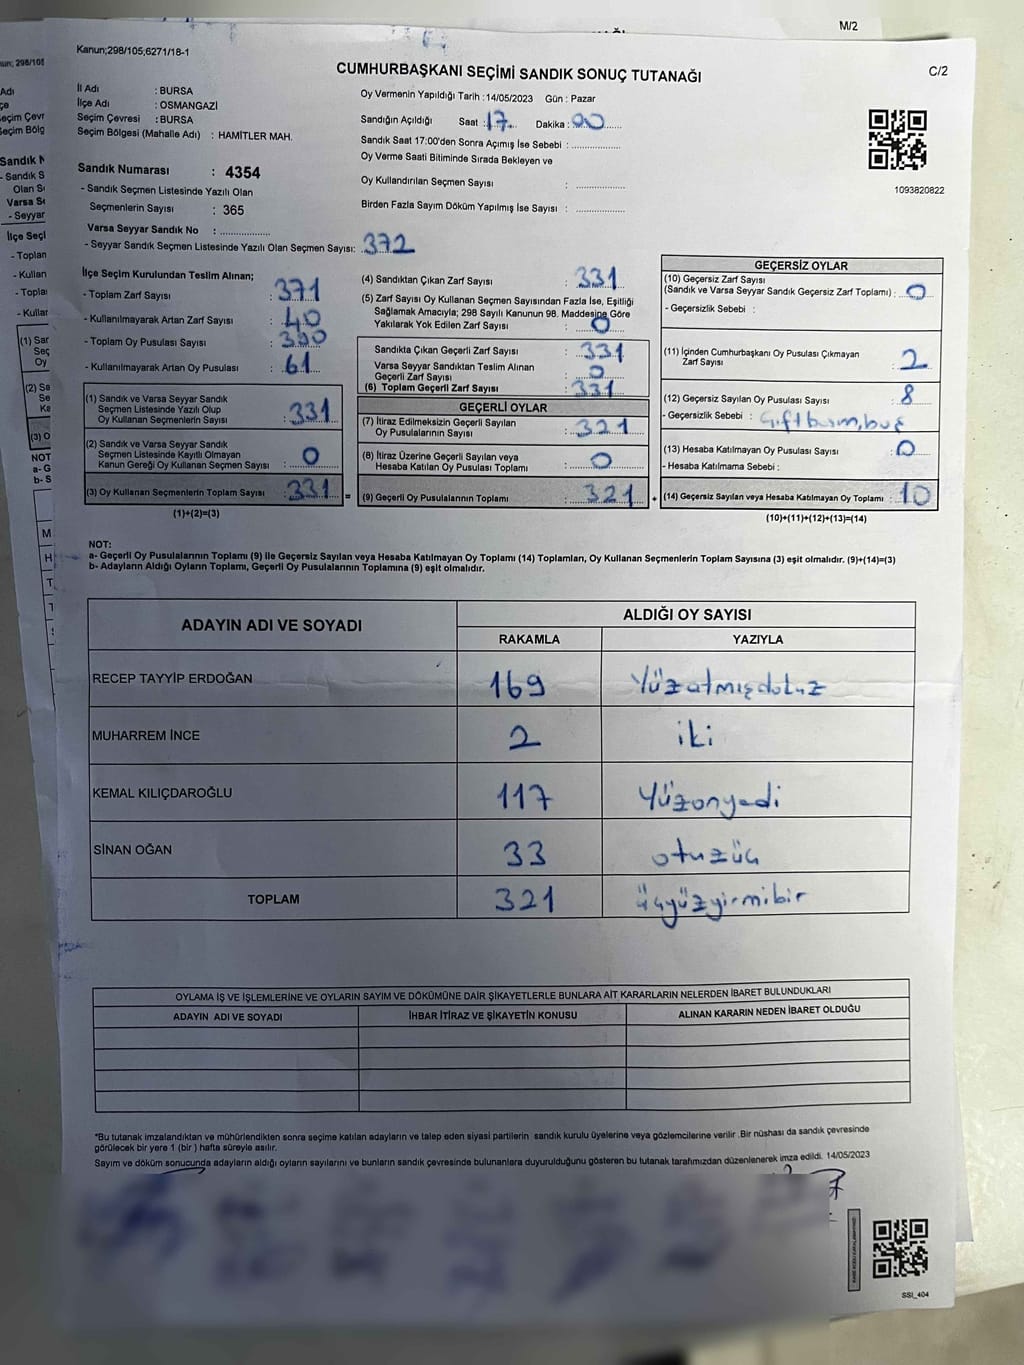 M/2
Kanun;298/105,6271/18-1
CUMHURBAŞKANI SEÇİMİ SANDIK SONUÇ TUTANAĞI
C/2
İl Adı : BURSA
İlçe Adı : OSMANGAZİ
Seçim Çevresi : BURSA
Seçim Bölgesi (Mahalle Adı) : HAMİTLER MAH.
Oy Vermenin Yapıldığı Tarih : 14/05/2023 Gün : Pazar
Sandığın Açıldığı Saat : 17 Dakika : 00
Sandık Saat 17:00'den Sonra Açılmış İse Sebebi :
Oy Verme Saati Bitiminde Sırada Bekleyen ve
Oy Kullandırılan Seçmen Sayısı :
Birden Fazla Sayım Döküm Yapılmış İse Sayısı :
1093820822
Sandık Numarası : 4354
- Sandık Seçmen Listesinde Yazılı Olan
Seçmenlerin Sayısı : 365
Varsa Seyyar Sandık No :
- Seyyar Sandık Seçmen Listesinde Yazılı Olan Seçmen Sayısı: 372
İlçe Seçim Kurulundan Teslim Alınan;
- Toplam Zarf Sayısı : 371
- Kullanılmayarak Artan Zarf Sayısı : 40
- Toplam Oy Pusulası Sayısı :
- Kullanılmayarak Artan Oy Pusulası : 61
(1) Sandık ve Varsa Seyyar Sandık
Seçmen Listesinde Yazılı Olup
Oy Kullanan Seçmenlerin Sayısı : 331
(2) Sandık ve Varsa Seyyar Sandık
Seçmen Listesinde Kayıtlı Olmayan
Kanun Gereği Oy Kullanan Seçmen Sayısı : 0
(3) Oy Kullanan Seçmenlerin Toplam Sayısı : 331 =
(1)+(2)=(3)
(4) Sandıktan Çıkan Zarf Sayısı : 331
(5) Zarf Sayısı Oy Kullanan Seçmen Sayısından Fazla İse, Eşitliği
Sağlamak Amacıyla; 298 Sayılı Kanunun 98. Maddesine Göre
Yakılarak Yok Edilen Zarf Sayısı : 0
Sandıkta Çıkan Geçerli Zarf Sayısı : 331
Varsa Seyyar Sandıktan Teslim Alınan
Geçerli Zarf Sayısı : 0
(6) Toplam Geçerli Zarf Sayısı : 331
GEÇERLİ OYLAR
(7) İtiraz Edilmeksizin Geçerli Sayılan
Oy Pusulalarının Sayısı : 321
(8) İtiraz Üzerine Geçerli Sayılan veya
Hesaba Katılan Oy Pusulası Toplamı : 0
(9) Geçerli Oy Pusulalarının Toplamı : 321 +
GEÇERSİZ OYLAR
(10) Geçersiz Zarf Sayısı
(Sandık ve Varsa Seyyar Sandık Geçersiz Zarf Toplamı) : 0
- Geçersizlik Sebebi :
(11) İçinden Cumhurbaşkanı Oy Pusulası Çıkmayan
Zarf Sayısı : 2
(12) Geçersiz Sayılan Oy Pusulası Sayısı : 8
- Geçersizlik Sebebi :
(13) Hesaba Katılmayan Oy Pusulası Sayısı : 0
- Hesaba Katılmama Sebebi :
(14) Geçersiz Sayılan veya Hesaba Katılmayan Oy Toplamı : 10
(10)+(11)+(12)+(13)=(14)
NOT:
a- Geçerli Oy Pusulalarının Toplamı (9) ile Geçersiz Sayılan veya Hesaba Katılmayan Oy Toplamı (14) Toplamları, Oy Kullanan Seçmenlerin Toplam Sayısına (3) eşit olmalıdır. (9)+(14)=(3)
b- Adayların Aldığı Oyların Toplamı, Geçerli Oy Pusulalarının Toplamına (9) eşit olmalıdır.
ADAYIN ADI VE SOYADI
ALDIĞI OY SAYISI
RAKAMLA YAZIYLA
RECEP TAYYİP ERDOĞAN 169 Yüzatmışdokuz
MUHARREM İNCE 2 iki
KEMAL KILIÇDAROĞLU 117 Yüzonyedi
SİNAN OĞAN 33 otuzüç
TOPLAM 321 üçyüzyirmibir
OYLAMA İŞ VE İŞLEMLERİNE VE OYLARIN SAYIM VE DÖKÜMÜNE DAİR ŞİKAYETLERLE BUNLARA AİT KARARLARIN NELERDEN İBARET BULUNDUKLARI
ADAYIN ADI VE SOYADI İHBAR İTİRAZ VE ŞİKAYETİN KONUSU ALINAN KARARIN NEDEN İBARET OLDUĞU
*Bu tutanak imzalandıktan ve mühürlendikten sonra seçime katılan adayların ve talep eden siyasi partilerin sandık kurulu üyelerine veya gözlemcilerine verilir .Bir nüshası da sandık çevresinde
görülecek bir yere 1 (bir ) hafta süreyle asılır.
Sayım ve döküm sonucunda adayların aldığı oyların sayılarını ve bunların sandık çevresinde bulunanlara duyurulduğunu gösteren bu tutanak tarafımızdan düzenlenerek imza edildi. 14/05/2023
SSI_404